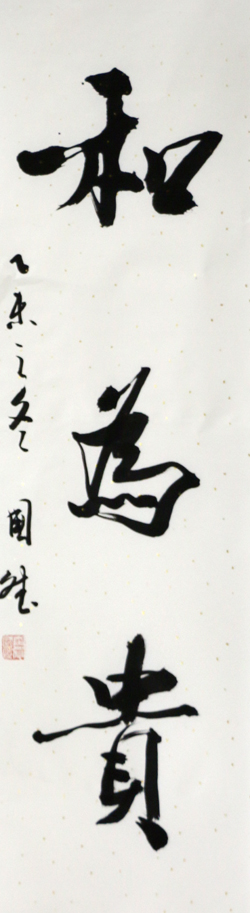 和為貴
乙未之冬 國